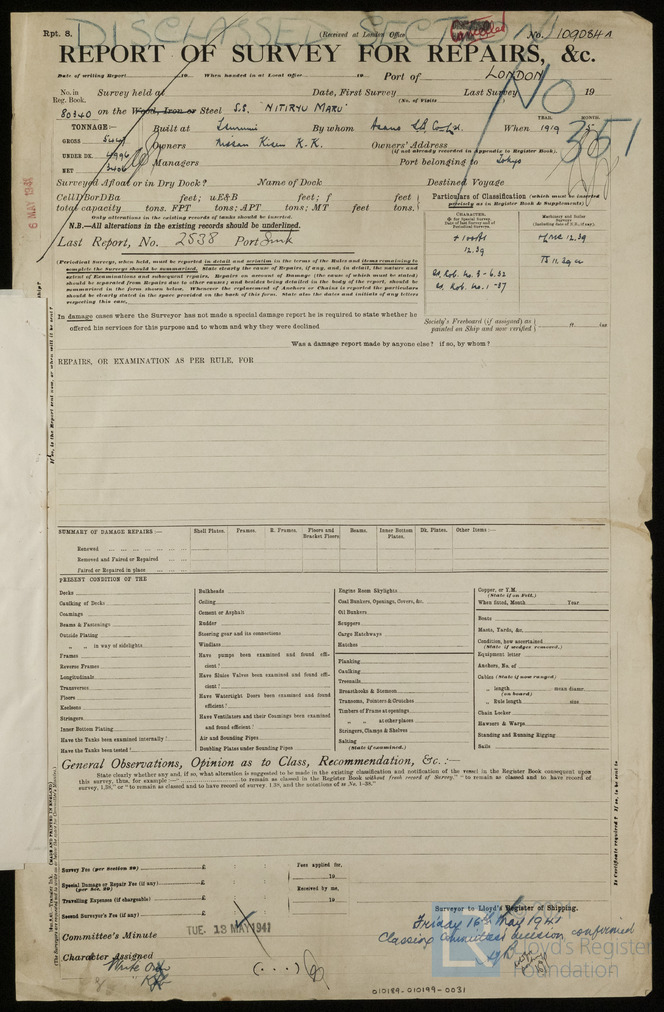 Rpt. 8.
DISCLASSED SECTION
(Received at London Office
No. 109084A
REPORT OF SURVEY FOR REPAIRS, &c.
Date of writing Report 19 When handed in at Local Office 19 Port of LONDON
No. in Reg. Book. Survey held at Date, First Survey Last Survey 19
(No. of Visits
80340 on the Wood, Iron or Steel S.S. "NITIRYU MARU"
NO
351
TONNAGE:—
GROSS
UNDER DK. 4996
NET
Built at Tsurumi By whom Asano S.B. Co. Ld. When 1919 5
YEAR. MONTH.
Owners Nissan Kisen K.K. Owners' Address
(if not already recorded in Appendix to Register Book).
Managers Port belonging to Tokyo
6 MAY 1941
Surveyed Afloat or in Dry Dock? Name of Dock Destined Voyage
Cell DBorDBa feet; uE&B feet; f feet
total capacity tons. FPT tons; APT tons; MT feet tons.
Only alterations in the existing records of tanks should be inserted.
N.B.—All alterations in the existing records should be underlined.
Last Report, No. 2538 Port
Particulars of Classification (which must be inserted precisely as in Register Book & Supplements)
CHARACTER.
Machinery and Boiler Surveys
(Including date of N.B., if any).
+100A1
12.39
+LMC 12.39
TS 11.39
(Periodical Surveys, when held, must be reported in detail and seriatim in the terms of the Rules and items remaining to
complete the Surveys should be summarised. State clearly the cause of Repairs, if any, and, in detail, the nature and
extent of Examinations and subsequent repairs. Repairs on account of Damage (the cause of which must be stated)
should be separated from Repairs due to other causes; and besides being detailed in the body of the report, should be
summarised in the form shown below. Whenever the replacement of Anchors or Chains is reported the particulars
should be clearly stated in the space provided on the back of this form. State also the dates and initials of any letters
respecting this case.
In damage cases where the Surveyor has not made a special damage report he is required to state whether he
offered his services for this purpose and to whom and why they were declined
Society's Freeboard (if assigned) as
painted on Ship and now verified ft. ins
Was a damage report made by anyone else? if so, by whom?
REPAIRS, OR EXAMINATION AS PER RULE, FOR
SUMMARY OF DAMAGE REPAIRS:— Shell Plates. Frames. R. Frames. Floors and Bracket Floors Beams. Inner Bottom Plates. Dk. Plates. Other Items:—
Renewed
Removed and Faired or Repaired
Faired or Repaired in place
PRESENT CONDITION OF THE
Decks
Caulking of Decks
Coamings
Beams & Fastenings
Outside Plating
„ „ in way of sidelights
Frames
Reverse Frames
Longitudinals
Transverses
Floors
Keelsons
Stringers
Inner Bottom Plating
Have the Tanks been examined internally?
Have the Tanks been tested?
Bulkheads
Ceiling
Cement or Asphalt
Rudder
Steering gear and its connections
Windlass
Have pumps been examined and found efficient?
Have Sluice Valves been examined and found efficient?
Have Watertight Doors been examined and found efficient?
Have Ventilators and their Coamings been examined and found efficient?
Air and Sounding Pipes
Doubling Plates under Sounding Pipes
Engine Room Skylights
Coal Bunkers, Openings, Covers, &c.
Oil Bunkers
Scuppers
Cargo Hatchways
Hatches
Planking
Caulking
Treenails
Breasthooks & Stemson
Transoms, Pointers & Crutches
Timbers of Frame at openings
„ „ at other places
Stringers, Clamps & Shelves
Salting
(State if examined.)
Copper, or Y.M.
(State if on Felt.)
When fitted, Month Year
Boats
Masts, Yards, &c.
Condition, how ascertained
(State if wedges removed.)
Equipment letter
Anchors, No. of
Cables (State if now ranged)
„ length mean diamr.
(on board)
„ Rule length size
Chain Locker
Hawsers & Warps
Standing and Running Rigging
Sails
General Observations, Opinion as to Class, Recommendation, &c.:—
State clearly whether any and, if so, what alteration is suggested to be made in the existing classification and notification of the vessel in the Register Book consequent upon
this survey, thus, for example:—" to remain as classed in the Register Book without fresh record of Survey," "to remain as classed and to have record of
survey, 1,38," or "to remain as classed and to have record of survey 1.38, and the notations of ss No. 1-38."
Survey Fee (per Section 20) £
Special Damage or Repair Fee (if any) £
(per Sec. 20)
Travelling Expenses (if chargeable) £
Second Surveyor's Fee (if any) £
Fees applied for,
19
Received by me,
19
Surveyor to Lloyd's Register of Shipping.
Committee's Minute
TUE. 13 MAY 1941
Character Assigned
Friday 16th May 1941
Classing Committee's decision confirmed
Lloyd's Register
Foundation
010189-010199-0031